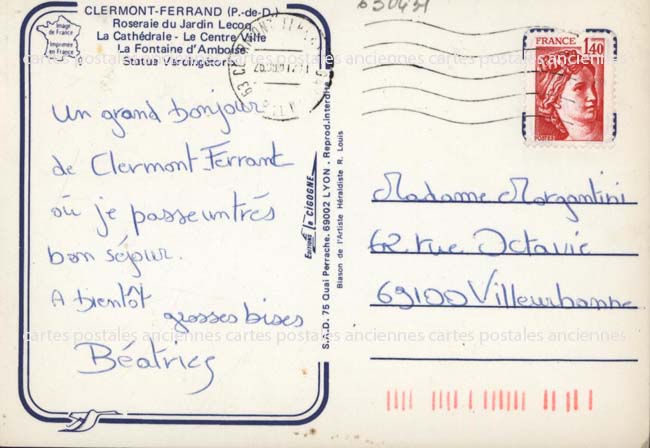 CLERMONT-FERRAND (P.-de-D.)
Roseraie du Jardin Lecoq
La Cathédrale - Le Centre Ville
La Fontaine d'Amboise
Statue Vercingétorix
Image de France
Imprimée en France
Un grand bonjour
de Clermont Ferrant
où je passe un très
bon séjour.
A bientôt
grosses bises
Béatrice
Editions la CIGOGNE
S.A.D. 75 Quai Perrache. 69002 LYON. Reprod. interdite
Blason de l'Artiste Héraldiste R. Louis
FRANCE 1,40
POSTES
Madame Morgantini
62 rue Octavie
69100 Villeurbanne
cartes postales anciennes cartes postales anciennes cartes postales anciennes
cartes postales anciennes cartes postales anciennes cartes postales anciennes
cartes postales anciennes cartes postales anciennes cartes postales anciennes